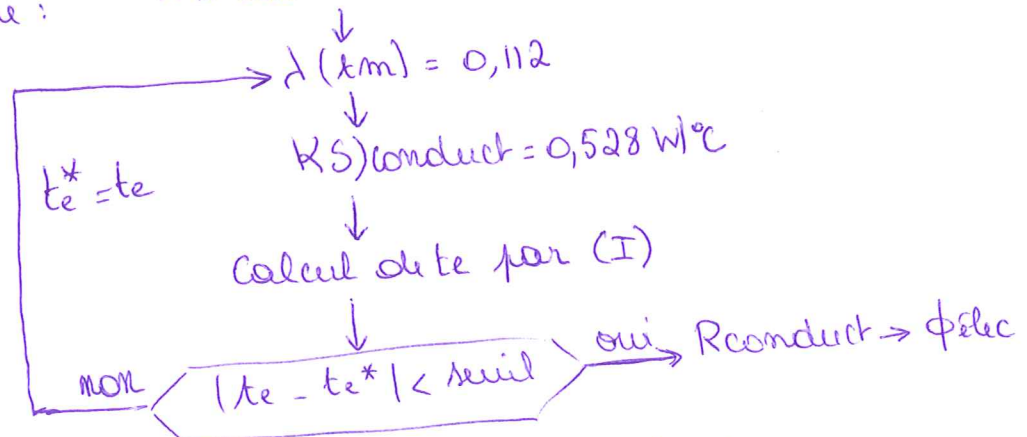 ue :
λ(tm) = 0,112
KS)conduct = 0,528 W/°C
te* = te
Calcul de te par (I)
non |te - te*| < seuil oui Rconduct → ϕélec